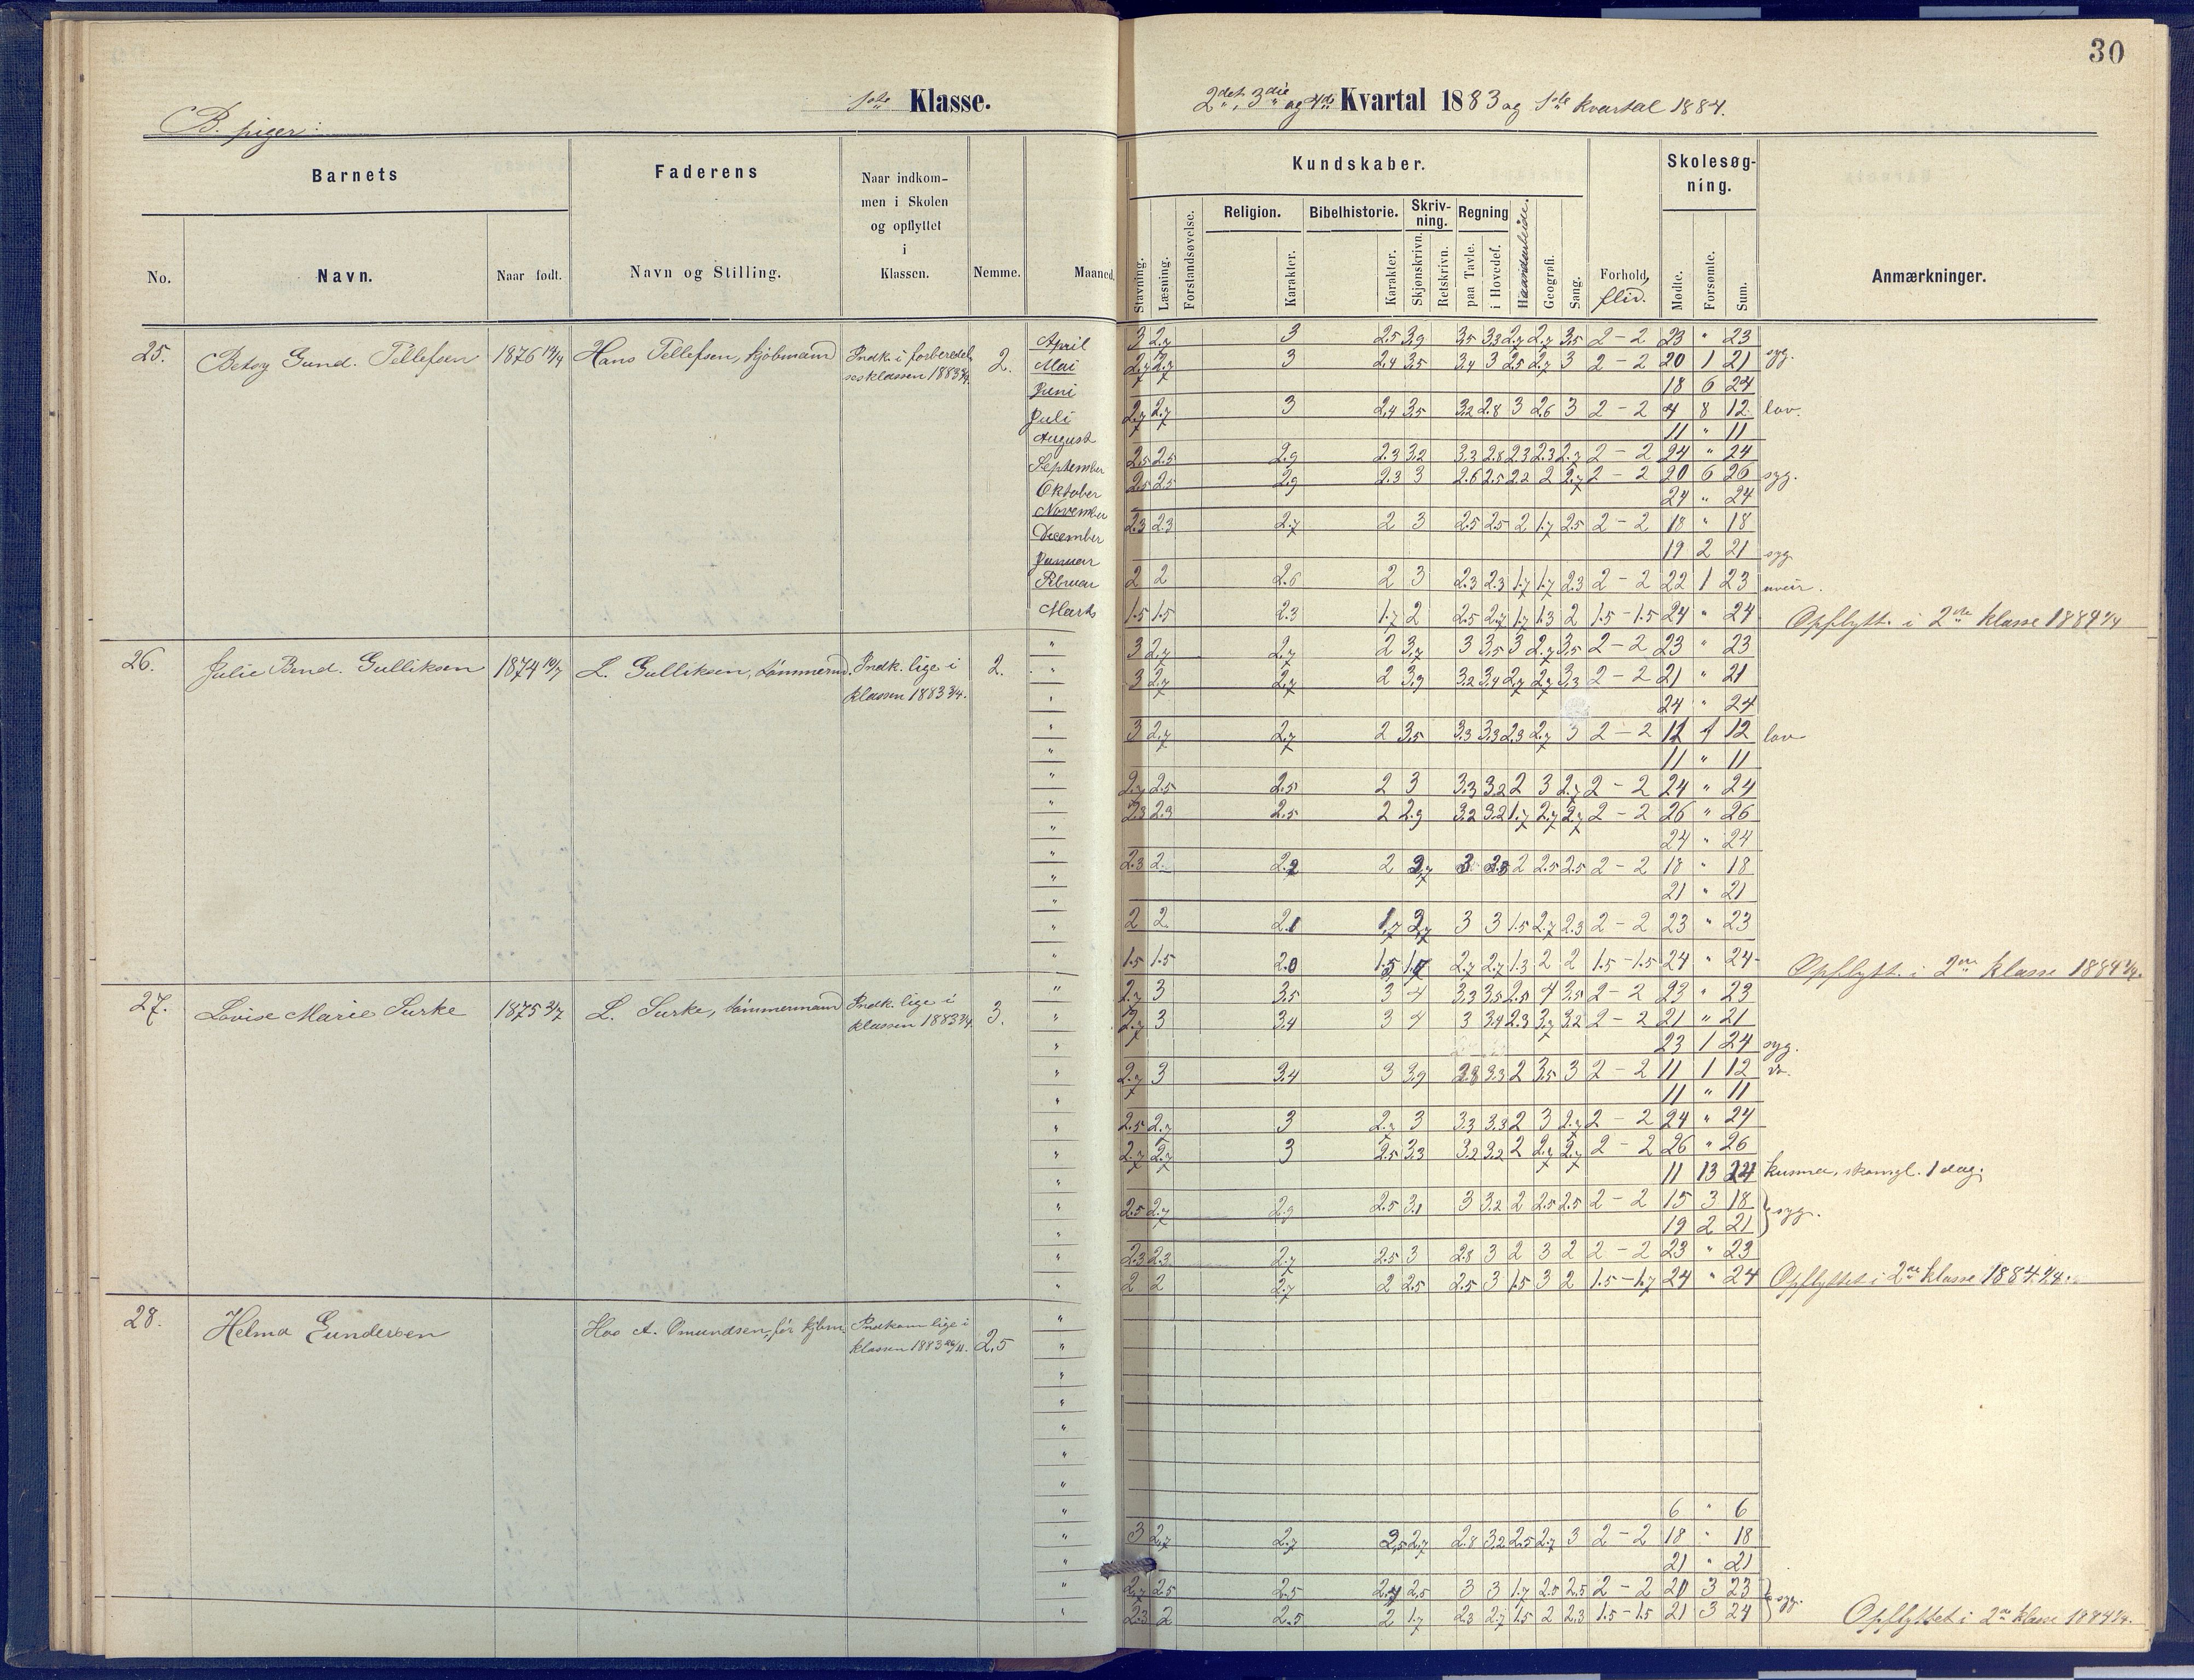 30
1ste Klasse.
2det, 3die og 4de Kvartal 1883 og 1ste kvartal 1884.
B. piger:
Barnets
Faderens
Naar indkom-
men i Skolen
og opflyttet
i
Klassen.
No.
Navn.
Naar født.
Navn og Stilling.
Nemme.
Maaned.
Kundskaber.
Skolesøg-
ning.
Stavning.
Læsning.
Forstandsøvelse.
Religion.
Karakter.
Bibelhistorie.
Karakter.
Skriv-
ning.
Skjønskrivn.
Retskrivn.
Regning
paa Tavle.
i Hovedet.
Haandarbeide.
Geografi.
Sang.
Forhold,
flid.
Mødte.
Forsømte.
Sum.
Anmærkninger.
25. Betsy Gund. Tellefsen 1876 14/4 Hans Tellefsen, kjøbmand Indk. i forberedel-
sesklassen 1883 3/4. 2.
April 3 2.7 3 2.5 3.9 3.5 3.3 2.7 2.7 3.5 2 – 2 23 " 23
Mai 2.7 2.7 3 2.4 3.5 3.4 3 2.5 2.7 3 2 – 2 20 1 21 syg.
Juni 18 6 24
Juli 2.7 2.7 3 2.4 3.5 3.2 2.8 3 2.6 3 2 – 2 4 8 12 lov.
August 11 " 11
September 2.5 2.5 2.9 2.3 3.2 3.3 2.8 2.3 2.3 2.7 2 – 2 24 " 24
Oktober 2.5 2.5 2.9 2.3 3 2.6 2.5 2.2 2 2.7 2 – 2 20 6 26 syg.
November 24 " 24
December 2.3 2.3 2.7 2 3 2.5 2.5 2 1.7 2.5 2 – 2 18 " 18
Januar 19 2 21 syg
Februar 2 2 2.6 2 3 2.3 2.3 1.7 1.7 2.3 2 – 2 22 1 23 uveir.
Marts 1.5 1.5 2.3 1.7 2 2.5 2.7 1.7 1.3 2 1.5 – 1.5 24 " 24 Opflytt. i 2den klasse 1884 1/4
26. Julie Bend. Gulliksen 1874 10/7 L. Gulliksen, tømmermd. Indk. lige i
klassen 1883 3/4. 2.
" 3 2.7 2.7 2 3.7 3 3.5 3 2.7 3.5 2 – 2 23 " 23
" 3 2.7 2.7 2 3.9 3.2 3.4 2.7 2.7 3.3 2 – 2 21 " 21
" 24 " 24
" 3 2.7 2.7 2 3.5 3.3 3.3 2.3 2.7 3 2 – 2 11 1 12 lov
" 11 " 11
" 2.7 2.5 2.5 2 3 3.3 3.2 2 3 2.7 2 – 2 24 " 24
" 2.3 2.3 2.5 2 2.9 3.2 3.2 1.7 2.7 2.7 2 – 2 26 " 26
" 24 " 24
" 2.3 2 2.2 2 2.7 3 2.8 2 2.5 2.5 2 – 2 18 " 18
" 21 " 21
" 2 2 2.1 1.7 2.7 3 3 1.5 2.7 2.3 2 – 2 23 " 23
" 1.5 1.5 2.0 1.5 1.7 2.7 2.7 1.3 2 2 1.5 – 1.5 24 " 24 Opflytt. i 2den klasse 1884 1/4.
27. Lovise Marie Surke 1875 3/7 L. Surke, tømmermand Indk. lige i
klassen 1883 3/4 3.
" 2.7 3 3.5 3 4 3.3 3.5 2.5 4 3.5 2 – 2 23 " 23
" 2.7 3 3.4 3 4 3 3.4 2.3 3.7 3.2 2 – 2 21 " 21
" 23 1 24 syg.
" 2.7 3 3.4 3 3.9 3.8 3.3 2 3.5 3 2 – 2 11 1 12
" 11 " 11
" 2.5 2.7 3 2.7 3 3.3 3.3 2 3 2.7 2 – 2 24 " 24
" 2.7 2.7 3 2.5 3.3 3.2 3.2 2 2.7 2.7 2 – 2 26 " 26
" 11 13 24 1 dag.
" 2.5 2.7 2.9 2.5 3.1 3 3.2 2 2.5 2.5 2 – 2 15 3 18
" 19 2 21 syg.
" 2.3 2.3 2.7 2.5 3 2.8 3 2 3 2 2 – 2 23 " 23
" 2 2 2.7 2 2.5 2.5 3 1.5 3 2 1.5 – 1.7 24 " 24 Opflyttet i 2den klasse 1884 1/4.
28. Helma Gundersen Hos A. Omundsen, før kjøbm. Indkom lige i
klassen 1883 2.5
"
"
"
"
"
"
"
" 6 " 6
" 3 2.7 2.7 2.5 2.7 2.8 3.2 2.5 2.7 3 2 – 2 18 " 18
" 21 " 21
" 2.7 2.5 2.5 2.7 2.5 3 3 1.7 2.5 2.5 2 – 2 20 3 23
" 2.3 2 2.5 2 1.7 2.3 2.7 1.5 2 2.3 1.5 – 1.5 21 3 24 syg. Opflyttet i 2den klasse 1884 1/4.